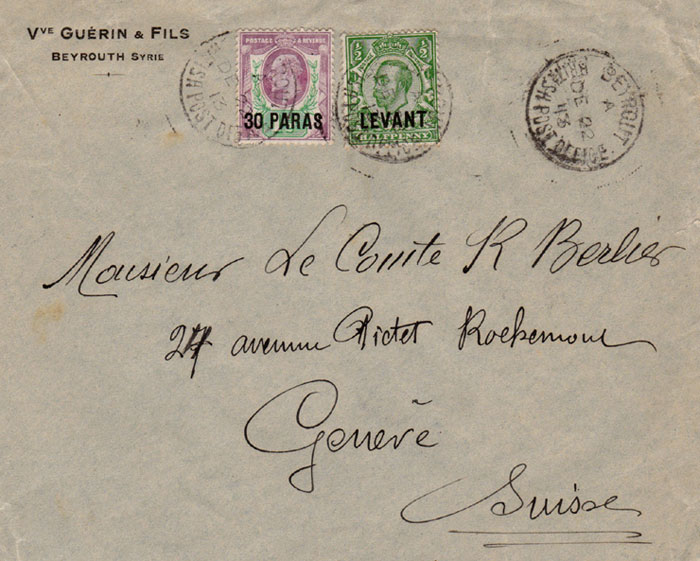 Vve Guérin & Fils
Beyrouth Syrie
POSTAGE & REVENUE
30 PARAS
½ ½
LEVANT
HALFPENNY
BEYROUT
A
DE 22
13
BRITISH POST OFFICE
Monsieur Le Comte R Berlier
24 avenue Pictet Rochemont
Genève
Suisse